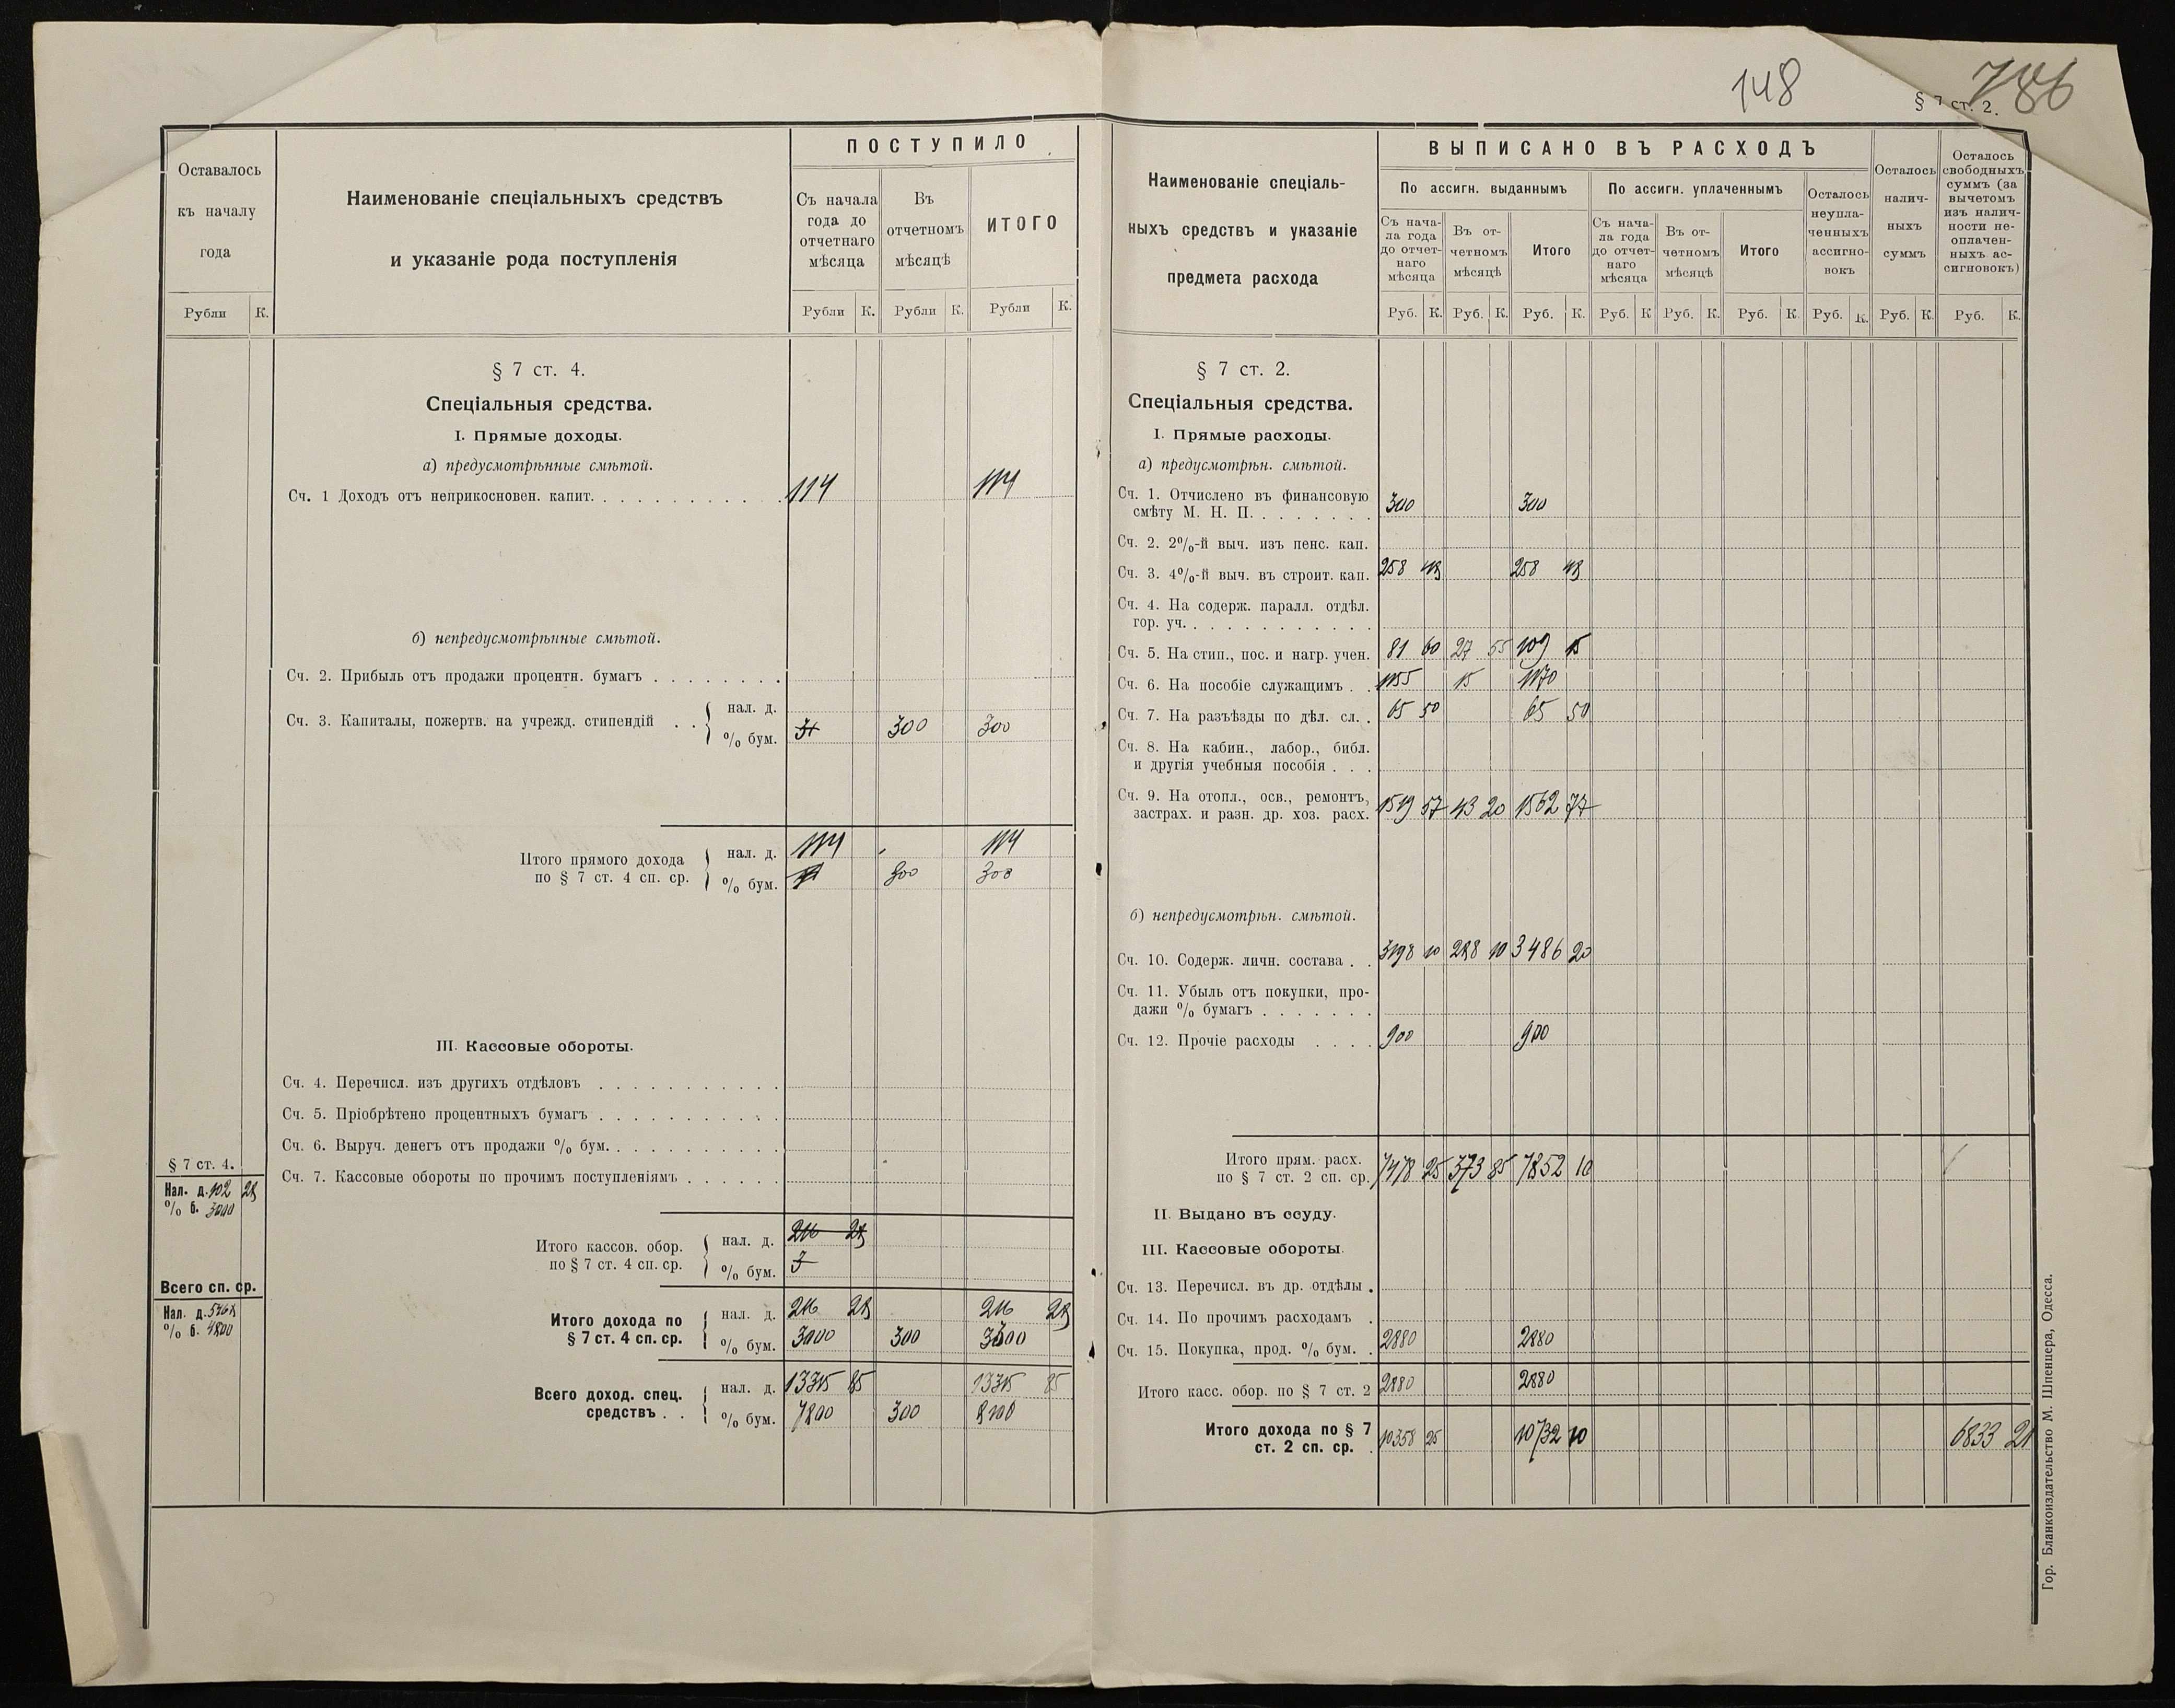 148
786
§ 7 ст. 2.
Оставалось
къ началу
года
Рубли К.
Наименованіе спеціальныхъ средствъ
и указаніе рода поступленія
ПОСТУПИЛО
Съ начала
года до
отчетнаго
мѣсяца
Въ
отчетномъ
мѣсяцѣ
ИТОГО
Рубли К. Рубли К. Рубли К.
§ 7 ст. 4.
Спеціальныя средства.
I. Прямые доходы.
а) предусмотрѣнные смѣтой.
Сч. 1 Доходъ отъ неприкосновен. капит. 114 114
б) непредусмотрѣнные смѣтой.
Сч. 2. Прибыль отъ продажи процентн. бумагъ
Сч. 3. Капиталы, пожертв. на учрежд. стипендій
нал. д.
% бум. 300 300
Итого прямого дохода
по § 7 ст. 4 сп. ср.
нал. д. 114 114
% бум. 300 300
III. Кассовые обороты.
Сч. 4. Перечисл. изъ другихъ отдѣловъ
Сч. 5. Пріобрѣтено процентныхъ бумагъ
Сч. 6. Выруч. денегъ отъ продажи % бум.
Сч. 7. Кассовые обороты по прочимъ поступленіямъ
§ 7 ст. 4.
Нал. д. 102 28
% б. 3000
Итого кассов. обор.
по § 7 ст. 4 сп. ср.
нал. д. 216 28
% бум.
Всего сп. ср.
Нал. д.
% б. 4800
Итого дохода по
§ 7 ст. 4 сп. ср.
нал. д. 216 28 216 28
% бум. 3000 300 3300
Всего доход. спец.
средствъ . .
нал. д. 13315 85 13315 85
% бум. 7800 300 8100
Наименованіе спеціаль-
ныхъ средствъ и указаніе
предмета расхода
ВЫПИСАНО ВЪ РАСХОДЪ
По ассигн. выданнымъ
По ассигн. уплаченнымъ
Съ нача-
ла года
до отчет-
наго
мѣсяца
Въ от-
четномъ
мѣсяцѣ
Итого
Съ нача-
ла года
до отчет-
наго
мѣсяца
Въ от-
четномъ
мѣсяцѣ
Итого
Осталось
неупла-
ченныхъ
ассигно-
вокъ
Осталось
налич-
ныхъ
суммъ
Осталось
свободныхъ
суммъ (за
вычетомъ
изъ налич-
ности не-
оплачен-
ныхъ ас-
сигновокъ)
Руб. К. Руб. К. Руб. К. Руб. К Руб. К. Руб. К. Руб. К. Руб. К. Руб. К.
§ 7 ст. 2.
Спеціальныя средства.
I. Прямые расходы.
а) предусмотрѣн. смѣтой.
Сч. 1. Отчислено въ финансовую
смѣту М. Н. П. 300 300
Сч. 2. 2%-й выч. изъ пенс. кап.
Сч. 3. 4%-й выч. въ строит. кап. 258 48 258 48
Сч. 4. На содерж. паралл. отдѣл.
гор. уч.
Сч. 5. На стип., пос. и нагр. учен. 81 60 27 55 109 15
Сч. 6. На пособіе служащимъ . . 1155 15 1170
Сч. 7. На разъѣзды по дѣл. сл. . 65 50 65 50
Сч. 8. На кабин., лабор., библ.
и другія учебныя пособія . . .
Сч. 9. На отопл., осв., ремонтъ,
застрах. и разн. др. хоз. расх. 1519 57 43 20 1562 77
б) непредусмотрѣн. смѣтой.
Сч. 10. Содерж. личн. состава . . 3198 10 288 10 3486 20
Сч. 11. Убыль отъ покупки, про-
дажи % бумагъ
Сч. 12. Прочіе расходы . . . . 900 900
Итого прям. расх.
по § 7 ст. 2 сп. ср. 7478 25 373 85 7852 10
II. Выдано въ ссуду.
III. Кассовые обороты.
Сч. 13. Перечисл. въ др. отдѣлы .
Сч. 14. По прочимъ расходамъ .
Сч. 15. Покупка, прод. % бум. . 2880 2880
Итого касс. обор. по § 7 ст. 2 2880 2880
Итого дохода по § 7
ст. 2 сп. ср. . 10358 25 10732 10 6833 21
Гор. Бланкоиздательство М. Шпенцера, Одесса.